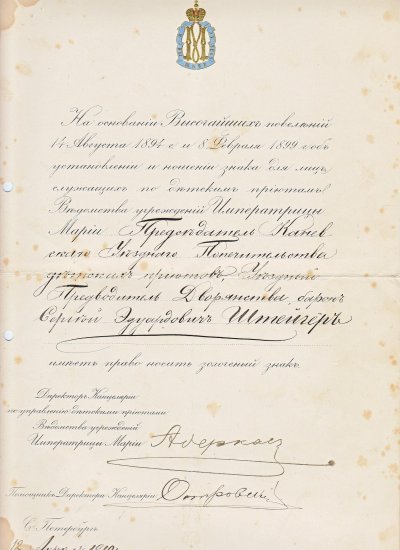 На основаніи Высочайшихъ повелѣній
14 Августа 1894 г. и 8 Февраля 1899 г. объ
установленіи и ношеніи знака для лицъ,
служащихъ по дѣтскимъ пріютамъ
Вѣдомства учрежденій Императрицы
Маріи Предсѣдатель Канев
скаго Уѣзднаго Попечительства
дѣтскихъ пріютовъ, Уѣздный
Предводитель Дворянства, баронъ
Сергѣй Эдуардовичъ Штейгеръ
имѣетъ право носить золоченый знакъ.
Директоръ Канцеляріи
по управленію дѣтскими пріютами
Вѣдомства учрежденій
Императрицы Маріи
Помощникъ Директора Канцеляріи
С. Петербургъ